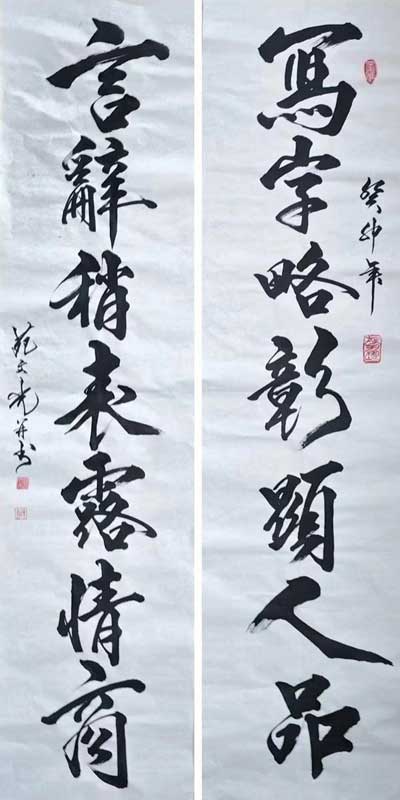 寫字略彰顯人品
癸卯年
言辭稍表露情商
范文光并书